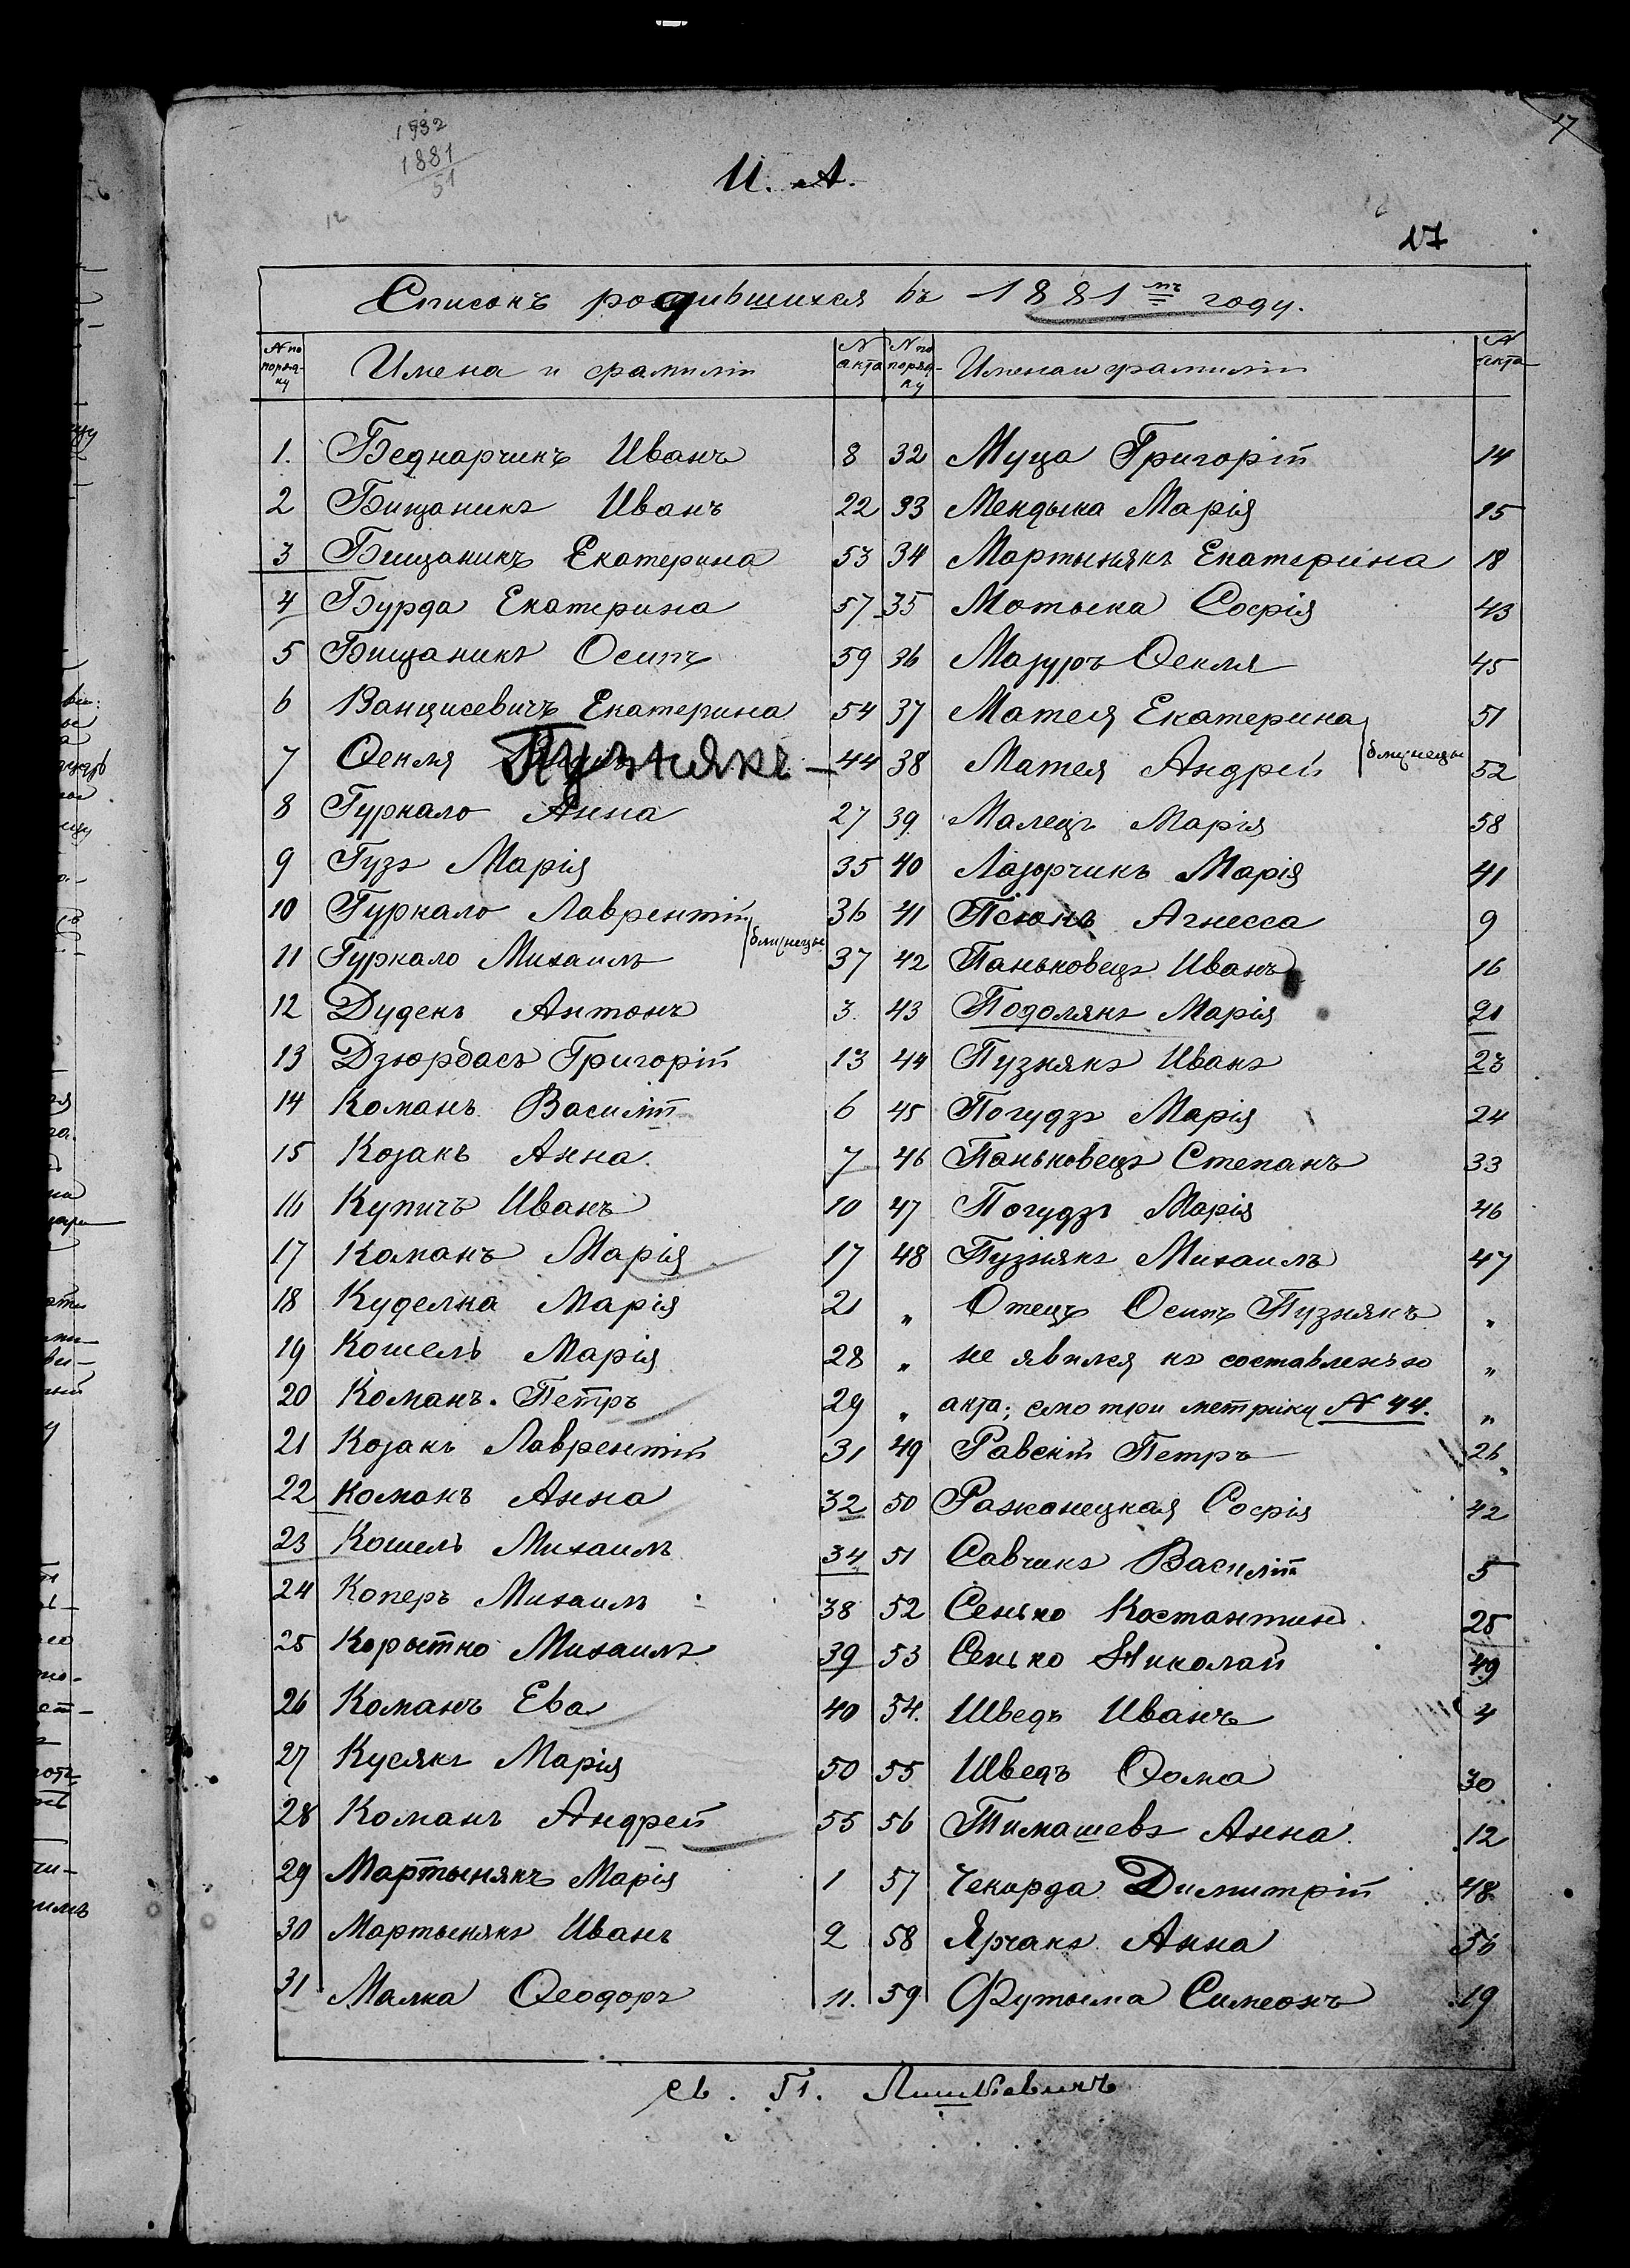 17
1932
1881
51
И. А.
12
17
Списокъ родившихся въ 1881мъ году.
№ по поряд-ку Имена и фамиліи № акта № по поряд-ку Имена и фамиліи № акта
1. Беднарчикъ Иванъ 8 32 Муца Григорій 14
2 Бищаникъ Иванъ 22 33 Мендыка Марія 15
3 Бищаникъ Екатерина 53 34 Мартынякъ Екатерина 18
4 Бурда Екатерина 57 35 Мотыка Софія 43
5 Бищаникъ Осипъ 59 36 Мазуръ Ѳекля 45
6 Ванцисевичъ Екатерина 54 37 Матея Екатерина 51
7 Ѳекля Пузнякъ – 44 38 Матея Андрей близнецы 52
8 Гуркало Анна 27 39 Малецъ Марія 58
9 Гузъ Марія 35 40 Лазорчикъ Марія 41
10 Гуркало Лаврентій 36 41 Псюкъ Агнесса 9
11 Гуркало Михаилъ близнецы 37 42 Паньковецъ Иванъ 16
12 Дудекъ Антонъ 3. 43 Подолякъ Марія 21
13 Дзюрбасъ Григорій 13 44 Пузнякъ Иванъ 23
14 Команъ Василій 6 45 Погудзъ Марія 24
15 Козакъ Анна. 7 46 Паньковецъ Степанъ 33
16 Купичъ Иванъ 10 47 Погудзъ Марія 46
17 Команъ Марія 17 48 Пузнякъ Михаилъ 47
18 Куделка Марія 21 „ Отецъ Осипъ Пузнякъ „
19 Кошель Марія 28 „ не явился къ составленью „
20 Команъ. Петръ 29 „ акта; смотри метрику № 44. „
21 Козакъ Лаврентій 31 49 Равскій Петръ 26
22 Команъ Анна 32 50 Ражанецкая Софія 42
23 Кошель Михаилъ 34 51 Савчикъ Василій 5
24 Коперъ Михаилъ 38 52 Сенько Костантинъ 25
25 Корытко Михаилъ 39 53 Сенько Николай 49
26 Команъ Ева 40 54. Шведъ Иванъ 4
27 Кусякъ Марія 50 55 Шведъ Ѳома 30
28 Команъ Андрей 55 56 Тимашевъ Анна. 12
29 Мартынякъ Марія 1 57 Чекирда Димитрій 48
30 Мартынякъ Иванъ 2 58 Ярчакъ Анна 56
31 Малка Ѳеодоръ 11. 59 Футыма Симеонъ 19
Св. П.